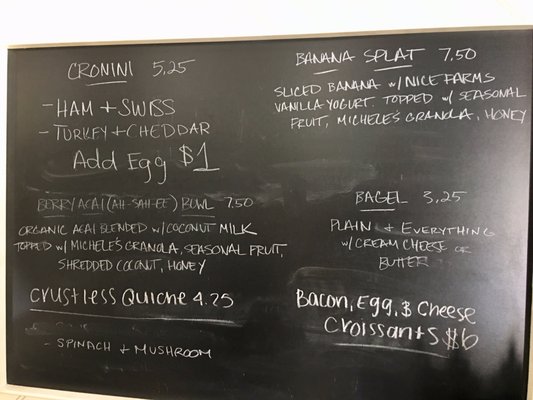 CRONINI 5.25
- HAM + SWISS
- TURKEY + CHEDDAR
Add Egg $1
BERRY ACAI (AH-SAH-EE) BOWL 7.50
ORGANIC ACAI BLENDED W/ COCONUT MILK
TOPPED W/ MICHELE'S GRANOLA, SEASONAL FRUIT,
SHREDDED COCONUT, HONEY
Crustless Quiche 4.25
- SPINACH + MUSHROOM
BANANA SPLAT 7.50
SLICED BANANA W/ NICE FARMS
VANILLA YOGURT. TOPPED W/ SEASONAL
FRUIT, MICHELE'S GRANOLA, HONEY
BAGEL 3.25
PLAIN + EVERYTHING
W/ CREAM CHEESE OR
BUTTER
Bacon, Egg, $ Cheese
Croissants $6